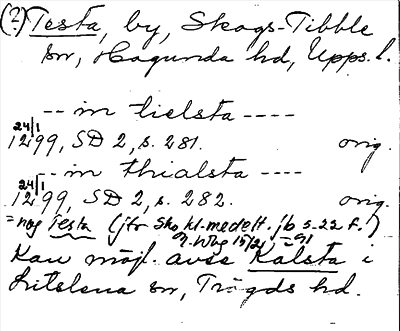 (?) Testa, by, Skogs-Tibble
sn, Hagunda hd, Upps. l.
-- in tielsta ----
24/1
1299, SD 2, s. 281. orig.
-- in thialsta ----
24/1
1299, SD 2, s. 282. orig.
= nog Testa (jfr Sko kl. medelt. jb s. 22 f.)
15/2 -91
Kan möjl. avse Kalsta i
Litslena sn, Trögds hd.